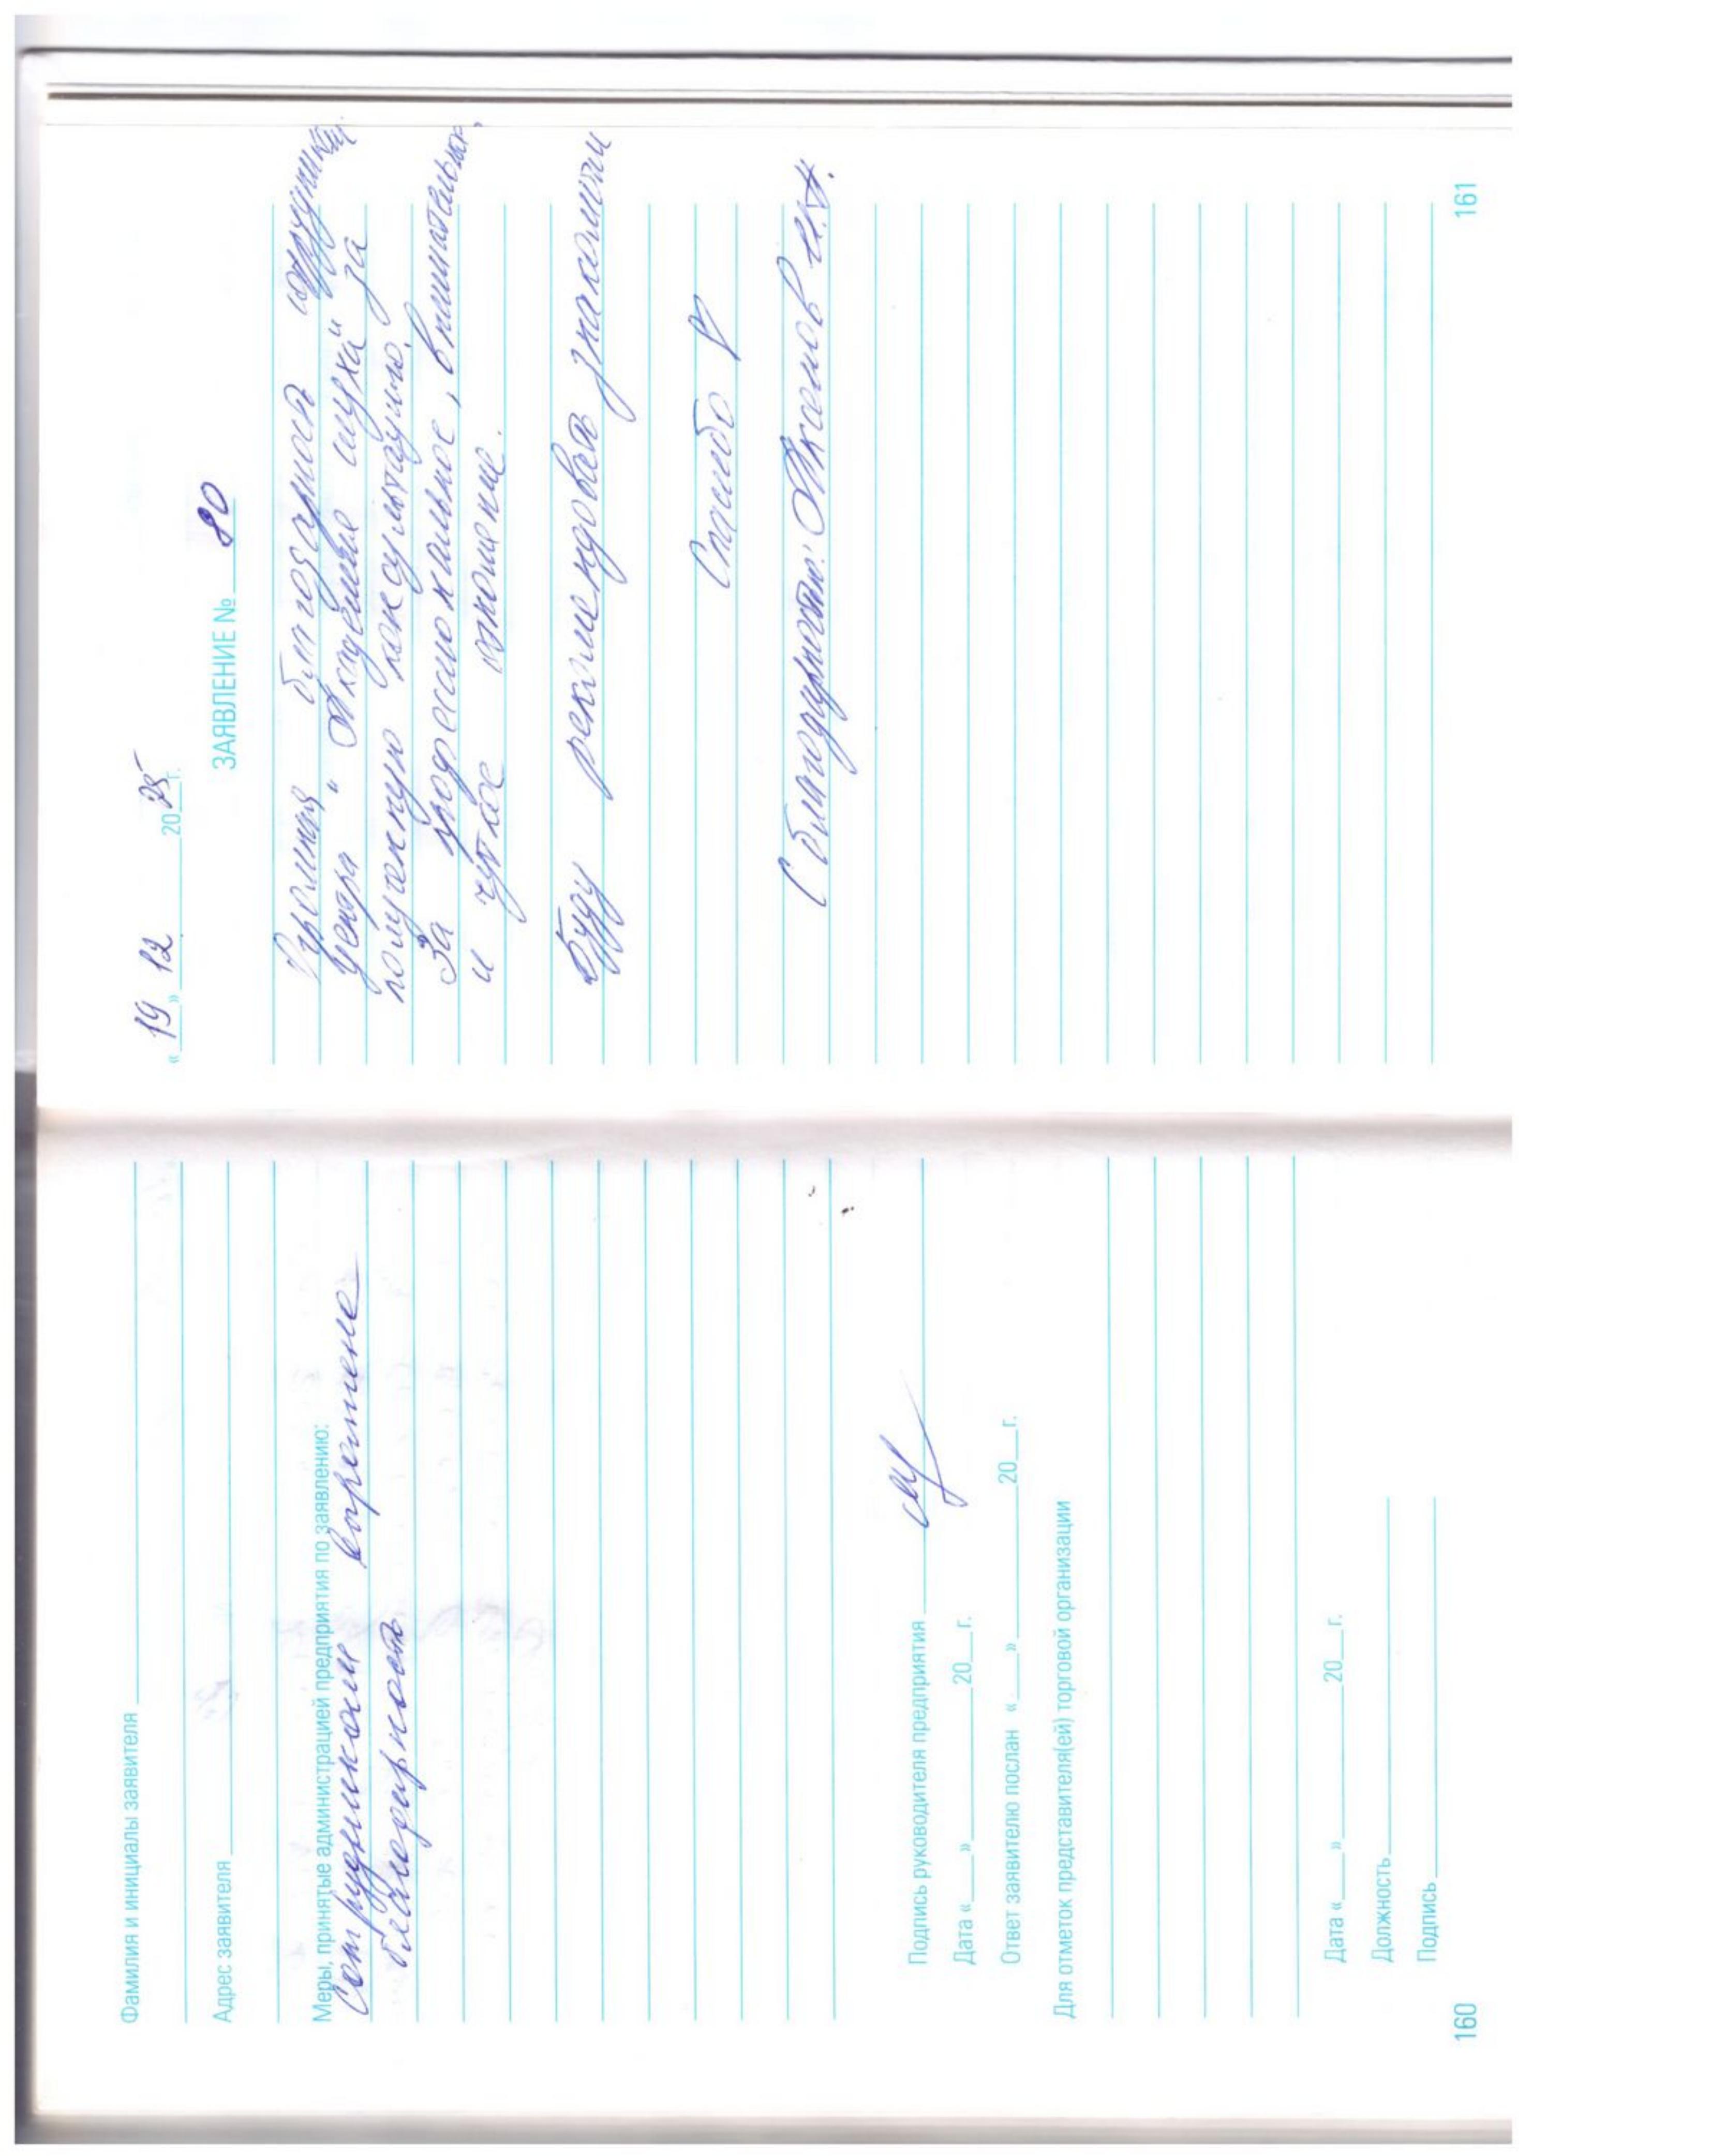 Фамилия и инициалы заявителя
Адрес заявителя
Меры, принятые администрацией предприятия по заявлению:
Сотрудникам выражение
благодарность
Подпись руководителя предприятия
Дата «__» ______ 20__г.
Ответ заявителю послан «__» ______ 20__г.
Для отметок представителя(ей) торговой организации
Дата «__» ______ 20__г.
Должность
Подпись
160
«19» 12 2025 г.
ЗАЯВЛЕНИЕ № 80
благодарность сотрудникам
центра "Академия слуха" за
полученную консультацию.
За профессиональное, внимательное,
и чуткое отношение.
Буду рекомендовать знакомым
Спасибо ♡
С благодарностью: Аксенов И.Н.
161